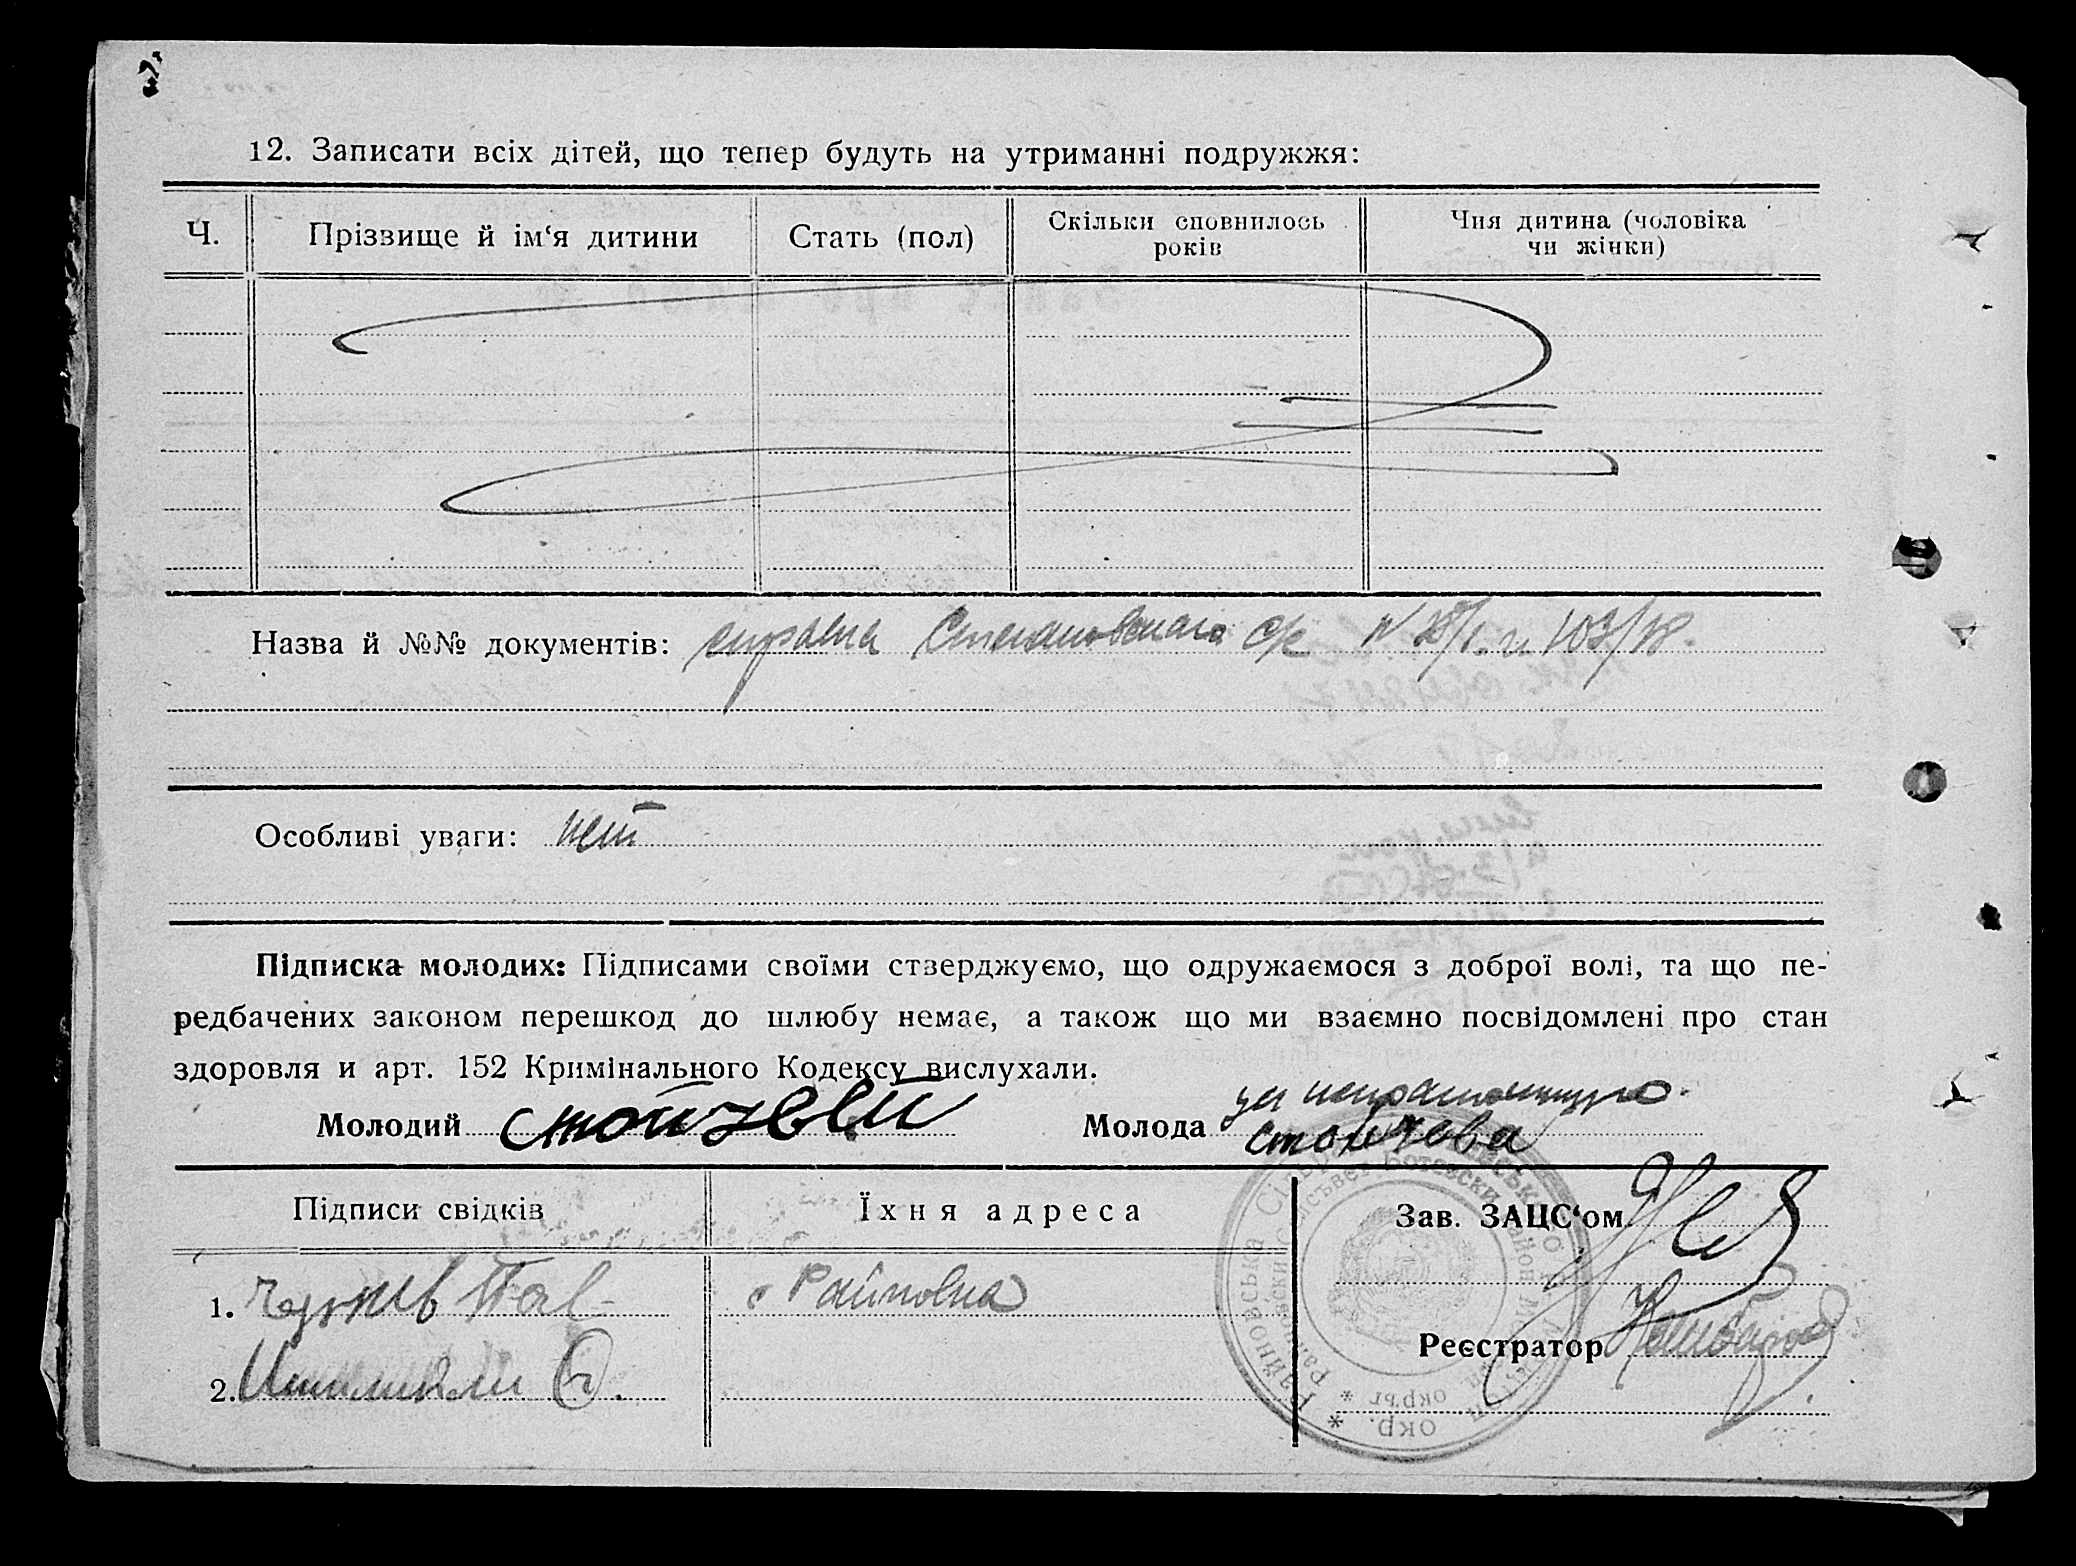 12. Записати всіх дітей, що тепер будуть на утриманні подружжя:
Ч. Прізвище й ім‘я дитини Стать (пол) Скільки сповнилось років Чия дитина (чоловіка чи жінки)
Назва й №№ документів: справка Степановского с/с N 28/1. и 103/18.
Особливі уваги: нет
Підписка молодих: Підписами своїми стверджуємо, що одружаємося з доброї волі, та що пе-
редбачених законом перешкод до шлюбу немає, а також що ми взаємно посвідомлені про стан
здоровля и арт. 152 Кримінального Кодексу вислухали.
за неграмотную.
Молодий Стойчев Молода Стойчева
Підписи свідків Їхня адреса Зав. ЗАЦС‘ом
1. с Райновка
Реєстратор
2.
окр.
окръг